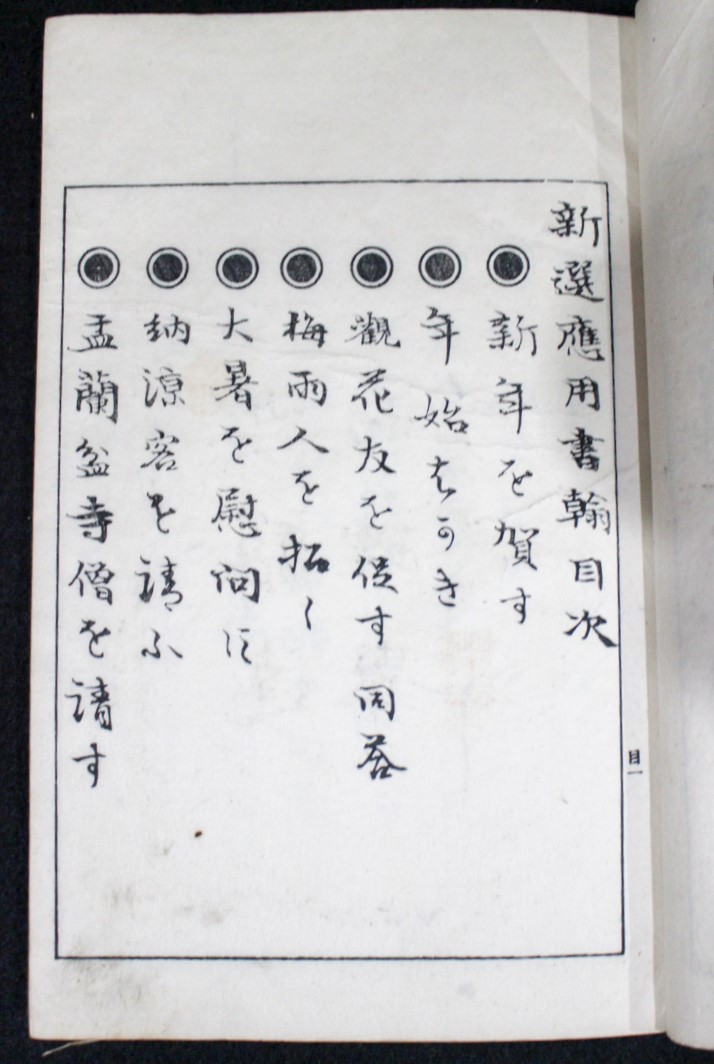 新選應用書翰目次
◉新年を賀す
◉年始はかき
◉觀花友を促す同答
◉梅雨人を招く
◉大暑を慰問す
◉納涼客を請ふ
◉盂蘭盆寺僧を請す
目一